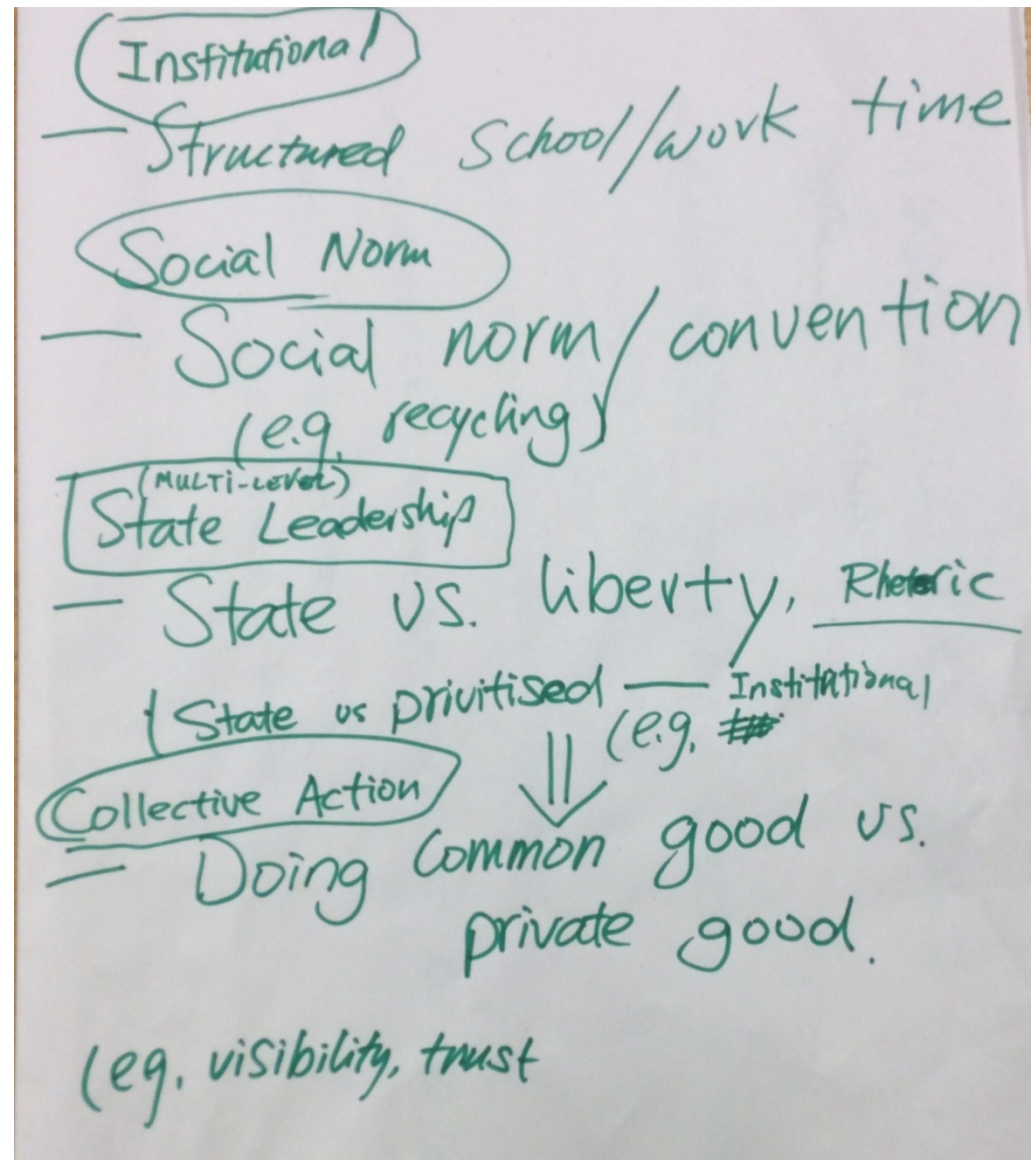 Institutional
— Structured School/work time
Social Norm
— Social norm/convention
(e.g. recycling)
(MULTi-LEVEL)
State Leadership
— State vs. liberty, Rhetoric
(State vs privitised — Institational
(e.g.
Collective Action
— Doing Common good vs.
private good.
(eg. visibility, trust